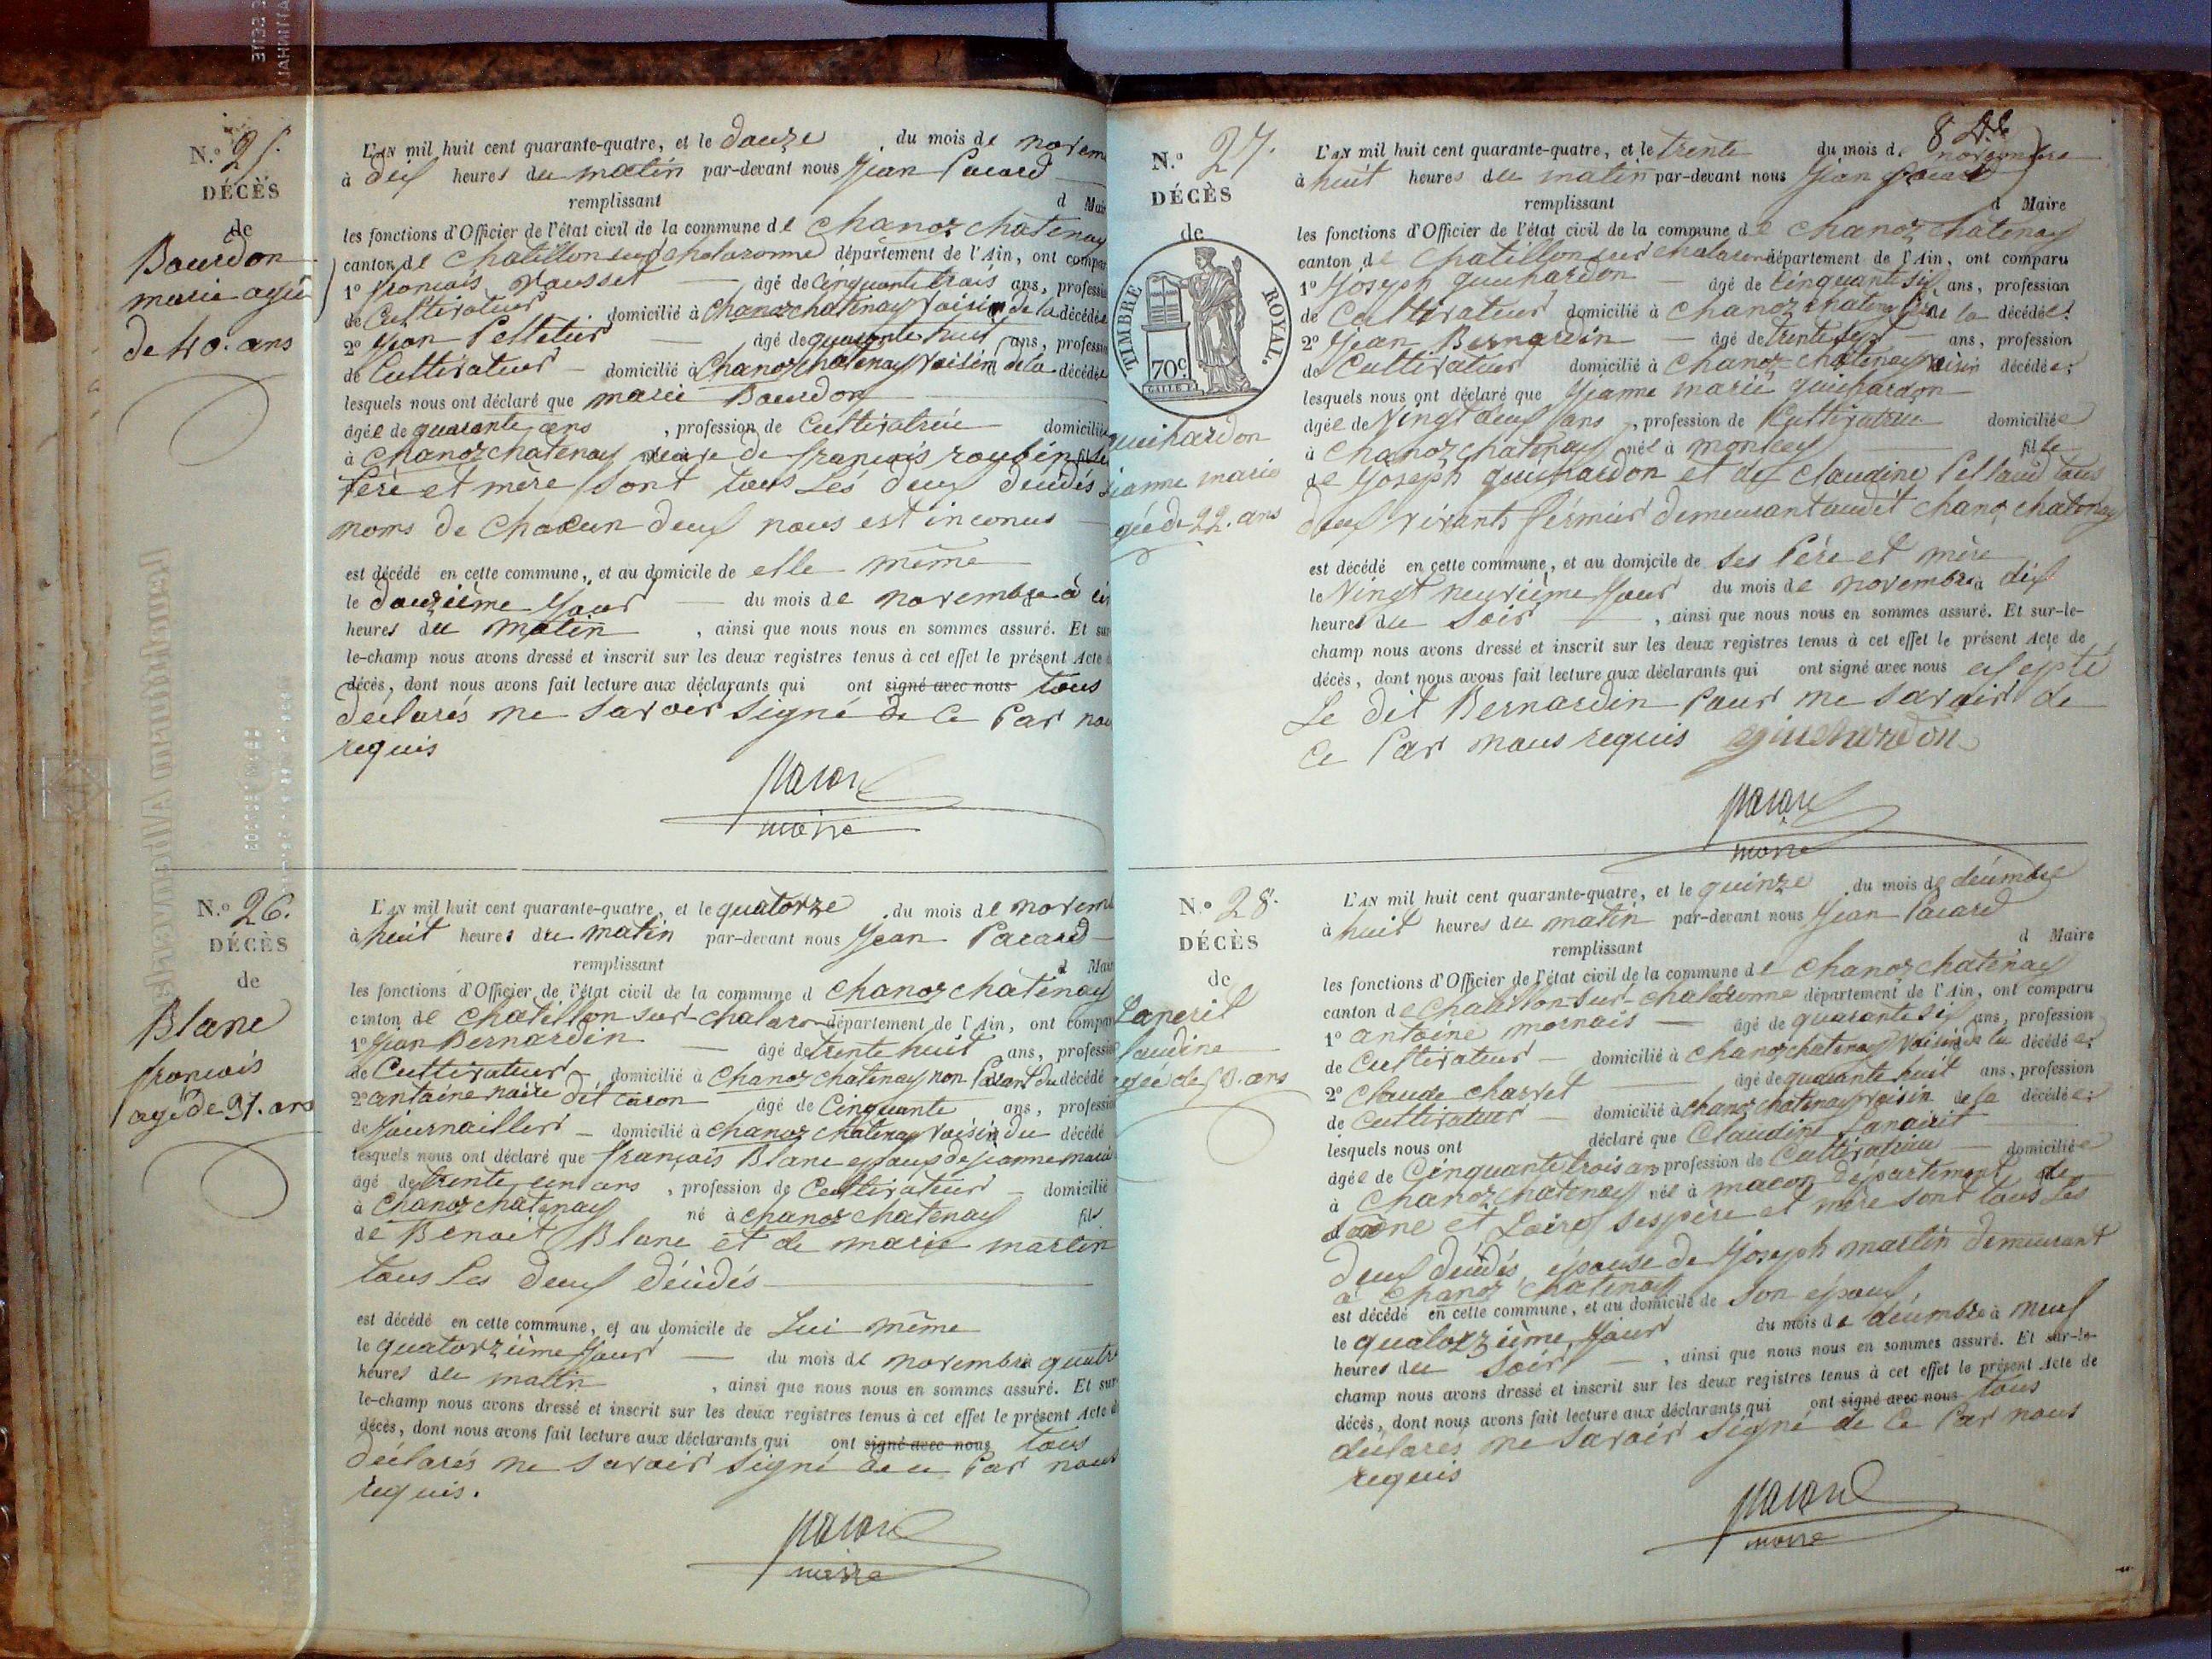 N.º 25.
DÉCÈS
de
Bourdon
marie agée
de 40. ans
L'AN mil huit cent quarante-quatre, et le douze du mois de novem
à dix heures du matin par-devant nous Jean Pacard
remplissant d Mair
les fonctions d'Officier de l'état civil de la commune de chanoz chatenay
canton de chatillon sur chalaronne département de l'Ain, ont compar
1º françois Rousset âgé de Cinquante trois ans, professio
de Cultivateur domicilié à Chanoz chatenay voisin de la décédée
2º Jean Pelletier âgé de quarante huit ans, professio
de Cultivateur domicilié à Chanoz chatenay voisin de la décédée
lesquels nous ont déclaré que marie Bourdon
âgée de quarante ans , profession de Cultivatrice domiciliée
à Chanoz chatenay de françois
Père et mère sont tous Les deux décédés
noms de chacun deux nous est inconus
est décédé en cette commune, et au domicile de elle même
le douzième Jour du mois de novembre à
heures du matin , ainsi que nous nous en sommes assuré. Et sur
le-champ nous avons dressé et inscrit sur les deux registres tenus à cet effet le présent Acte d
décès, dont nous avons fait lecture aux déclarants qui ont signé avec nous tous
déclarés ne savoir signé de Ce Par nou
requis
Pacard
maire
N.º 26.
DÉCÈS
de
Blanc
françois
agé de 31. ans
L'AN mil huit cent quarante-quatre, et le quatorze du mois de novem
à huit heures du matin par-devant nous Jean Pacard
remplissant d Mair
les fonctions d'Officier de l'état civil de la commune d chanoz chatenay
canton de Chatillon sur chalaron département de l'Ain, ont compar
1º Jean Bernardin âgé de trente huit ans, professio
de Cultivateur domicilié à Chanoz chatenay non Parant du décédé
2º antoine dit âgé de Cinquante ans, professio
de Journaillier domicilié à chanoz chatenay voisin du décédé
lesquels nous ont déclaré que françois Blanc epoux de jeanne marie
âgé de trente un ans , profession de Cultivateur domicilié
à chanoz chatenay né à chanoz chatenay fils
de Benoit Blanc et de marie martin
tous Les deux décédés
est décédé en cette commune, et au domicile de Lui même
le quatorzième Jour du mois de novembre à quatre
heures du matin , ainsi que nous nous en sommes assuré. Et sur
le-champ nous avons dressé et inscrit sur les deux registres tenus à cet effet le présent Acte d
décès, dont nous avons fait lecture aux déclarants qui ont signé avec nous tous
déclarés ne savoir signé de ce Par nous
requis.
Pacard
maire
N.º 27.
DÉCÈS
de
TIMBRE ROYAL.
70c
guichardon
jeanne marie
gée de 22. ans
L'AN mil huit cent quarante-quatre, et le trente du mois de novembre
à huit heures du matin par-devant nous Jean Pacard
remplissant d Maire
les fonctions d'Officier de l'état civil de la commune de chanoz chatenay
canton de Chatillon sur chalaronne département de l'Ain, ont comparu
1º Joseph guichardon âgé de cinquante six ans, profession
de Cultivateur domicilié à Chanoz chatenay Père de la décédée
2º Jean Bernardin âgé de trente sept ans, profession
de Cultivateur domicilié à Chanoz chatenay voisin décédée;
lesquels nous ont déclaré que Jeanne marie guichardon
âgée de Vingt deux ans , profession de Cultivatrice domiciliée
à Chanoz chatenay née à fille
de Joseph guichardon et de claudine Pellaud tous
deux vivants fermier demeurant audit chanoz chatenay
est décédé en cette commune, et au domicile de ses Père et mère
le Vingt neuvième Jour du mois de novembre à dix
heures du Soir , ainsi que nous nous en sommes assuré. Et sur-le-
champ nous avons dressé et inscrit sur les deux registres tenus à cet effet le présent Acte de
décès, dont nous avons fait lecture aux déclarants qui ont signé avec nous excepté
Le dit Bernardin Pour ne savoir de
Ce Par nous requis guichardon
Pacard
maire
N.º 28.
DÉCÈS
de
Laneril
laudine
gée de 53. ans
L'AN mil huit cent quarante-quatre, et le quinze du mois de décembre
à huit heures du matin par-devant nous Jean Pacard
remplissant d Maire
les fonctions d'Officier de l'état civil de la commune de chanoz chatenay
canton de Chatillon-sur-chalaronne département de l'Ain, ont comparu
1º antoine mornais âgé de quarante six ans, profession
de Cultivateur domicilié à Chanoz chatenay Voisin de la décédée;
2º Claude Charvet âgé de quarante huit ans, profession
de Cultivateur domicilié à Chanoz chatenay voisin de la décédée;
lesquels nous ont déclaré que Claudine
âgée de Cinquante trois ans profession de Cultivatrice domiciliée
à Chanoz chatenay née à macon département de
Saône et Loire ses père et mère sont tous Les
deux décédés épouse de Joseph martin demeurant
à Chanoz Chatenay
est décédé en cette commune, et au domicile de son époux
le quatorzième Jour du mois de décembre à neuf
heures du Soir , ainsi que nous nous en sommes assuré. Et sur-le-
champ nous avons dressé et inscrit sur les deux registres tenus à cet effet le présent Acte de
décès, dont nous avons fait lecture aux déclarants qui ont signé avec nous tous
déclarés ne savoir signé de Ce Par nous
requis
Pacard
maire